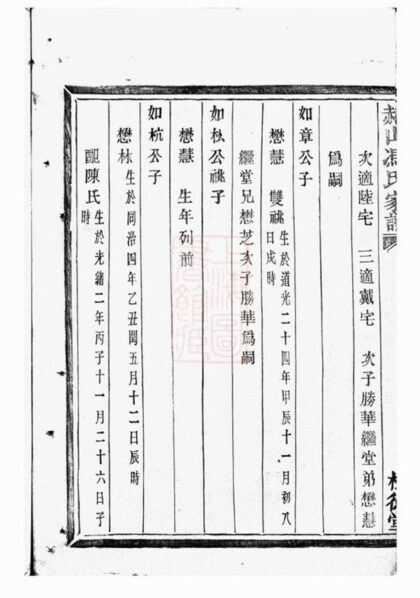 赫山馮氏家譜
次適陸宅 三適戴宅 次子勝華繼堂弟懋慧
爲嗣
如章公子
懋慧 雙祧 生於道光二十四年甲辰十一月初八日戌時
繼堂兄懋芝次子勝華爲嗣
如松公祧子
懋慧 生年列前
如杭公子
懋林 生於同治四年乙丑閏五月十二日辰時
配陳氏 生於光緒二年丙子十一月二十六日子時
上海圖書館藏